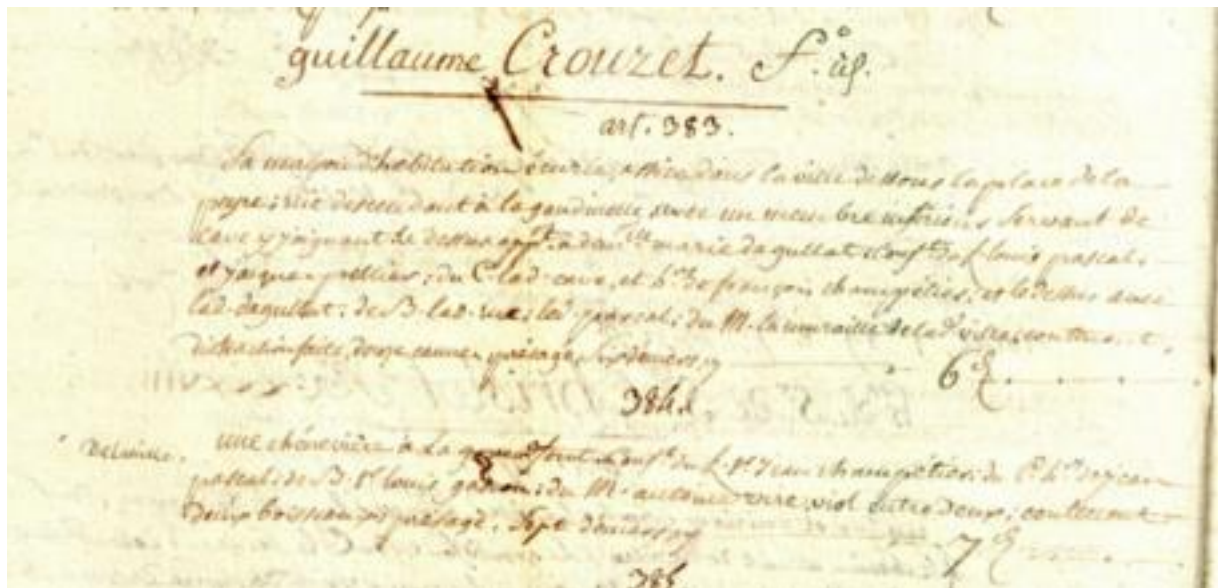 guillaume Crouzet. F.
art. 383.
Sa maison d'habitation écurie, assise dans la ville dessous la place de la
peyre; rue descendant à la gaudinelle, avec un membre inférieur Servant de
cave y joignant le dessus marie daguillat Louis pascal,
et jaques pellier; du C. lad. cave, et h.rs de françois champetier; et le dessus avec
lad. daguillat: de B. lad. rue; led. pascal; du M. la muraille de lad. ville, contenant
distraction faite, douze cannes présage six deniers
6 d
384.
une chénevière à La conf.te du L. jean champetier; du C. h.rs de jean
pascal; de B. s.r louis du M. antoine viol entre deux; contenant
deux boisseaux présage. Sept deniers
7 d
385